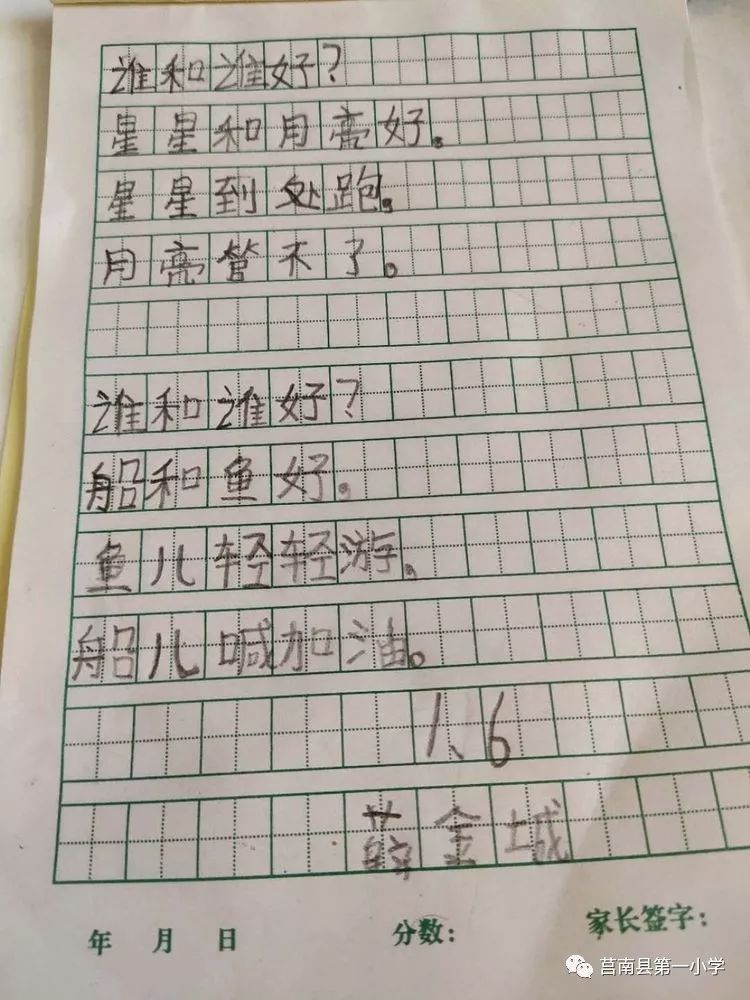 谁和谁好？
星星和用亮好。
星星到处跑。
用亮管不了。
谁和谁好？
船和鱼好。
鱼儿轻轻游。
船儿喊加油。
1、6
薛金城
年 月 日 分数： 家长签字：
莒南县第一小学